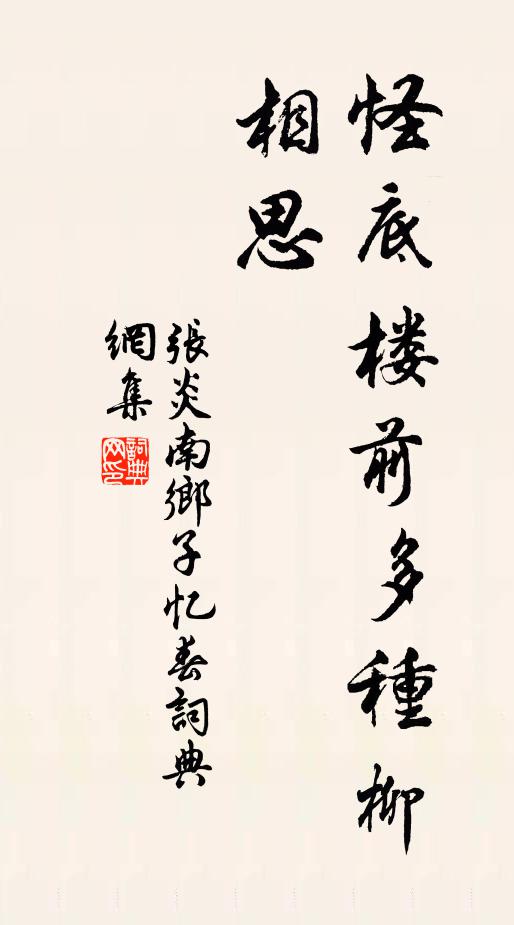 怪底楼前多種柳
相思
張炎南鄉子忆春詞典
網集
詞典网印